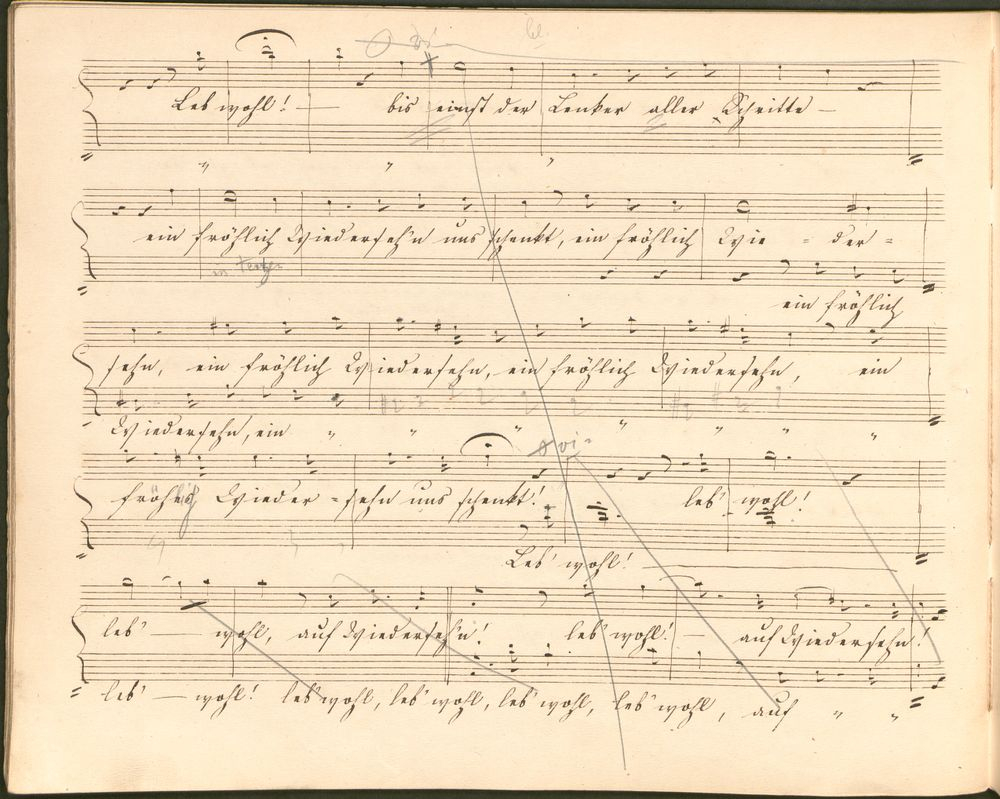 Leb wohl! — bis einst der Lenker aller Schritte —
ein fröhlich Wiederseh'n uns schenkt, ein fröhlich Wie = der =
in Terzen
ein fröhlich
sehn, ein fröhlich Wiedersehn, ein fröhlich Wiedersehn, ein
Wiedersehn, ein " " " " " " "
vi=
fröhlich Wieder = sehn uns schenkt! leb' wohl!
Leb' wohl! —
leb' — wohl, auf Wiederseh'n! leb' wohl! — auf Wiedersehn!
leb' — wohl! leb' wohl, leb' wohl, leb' wohl, leb' wohl, auf " "